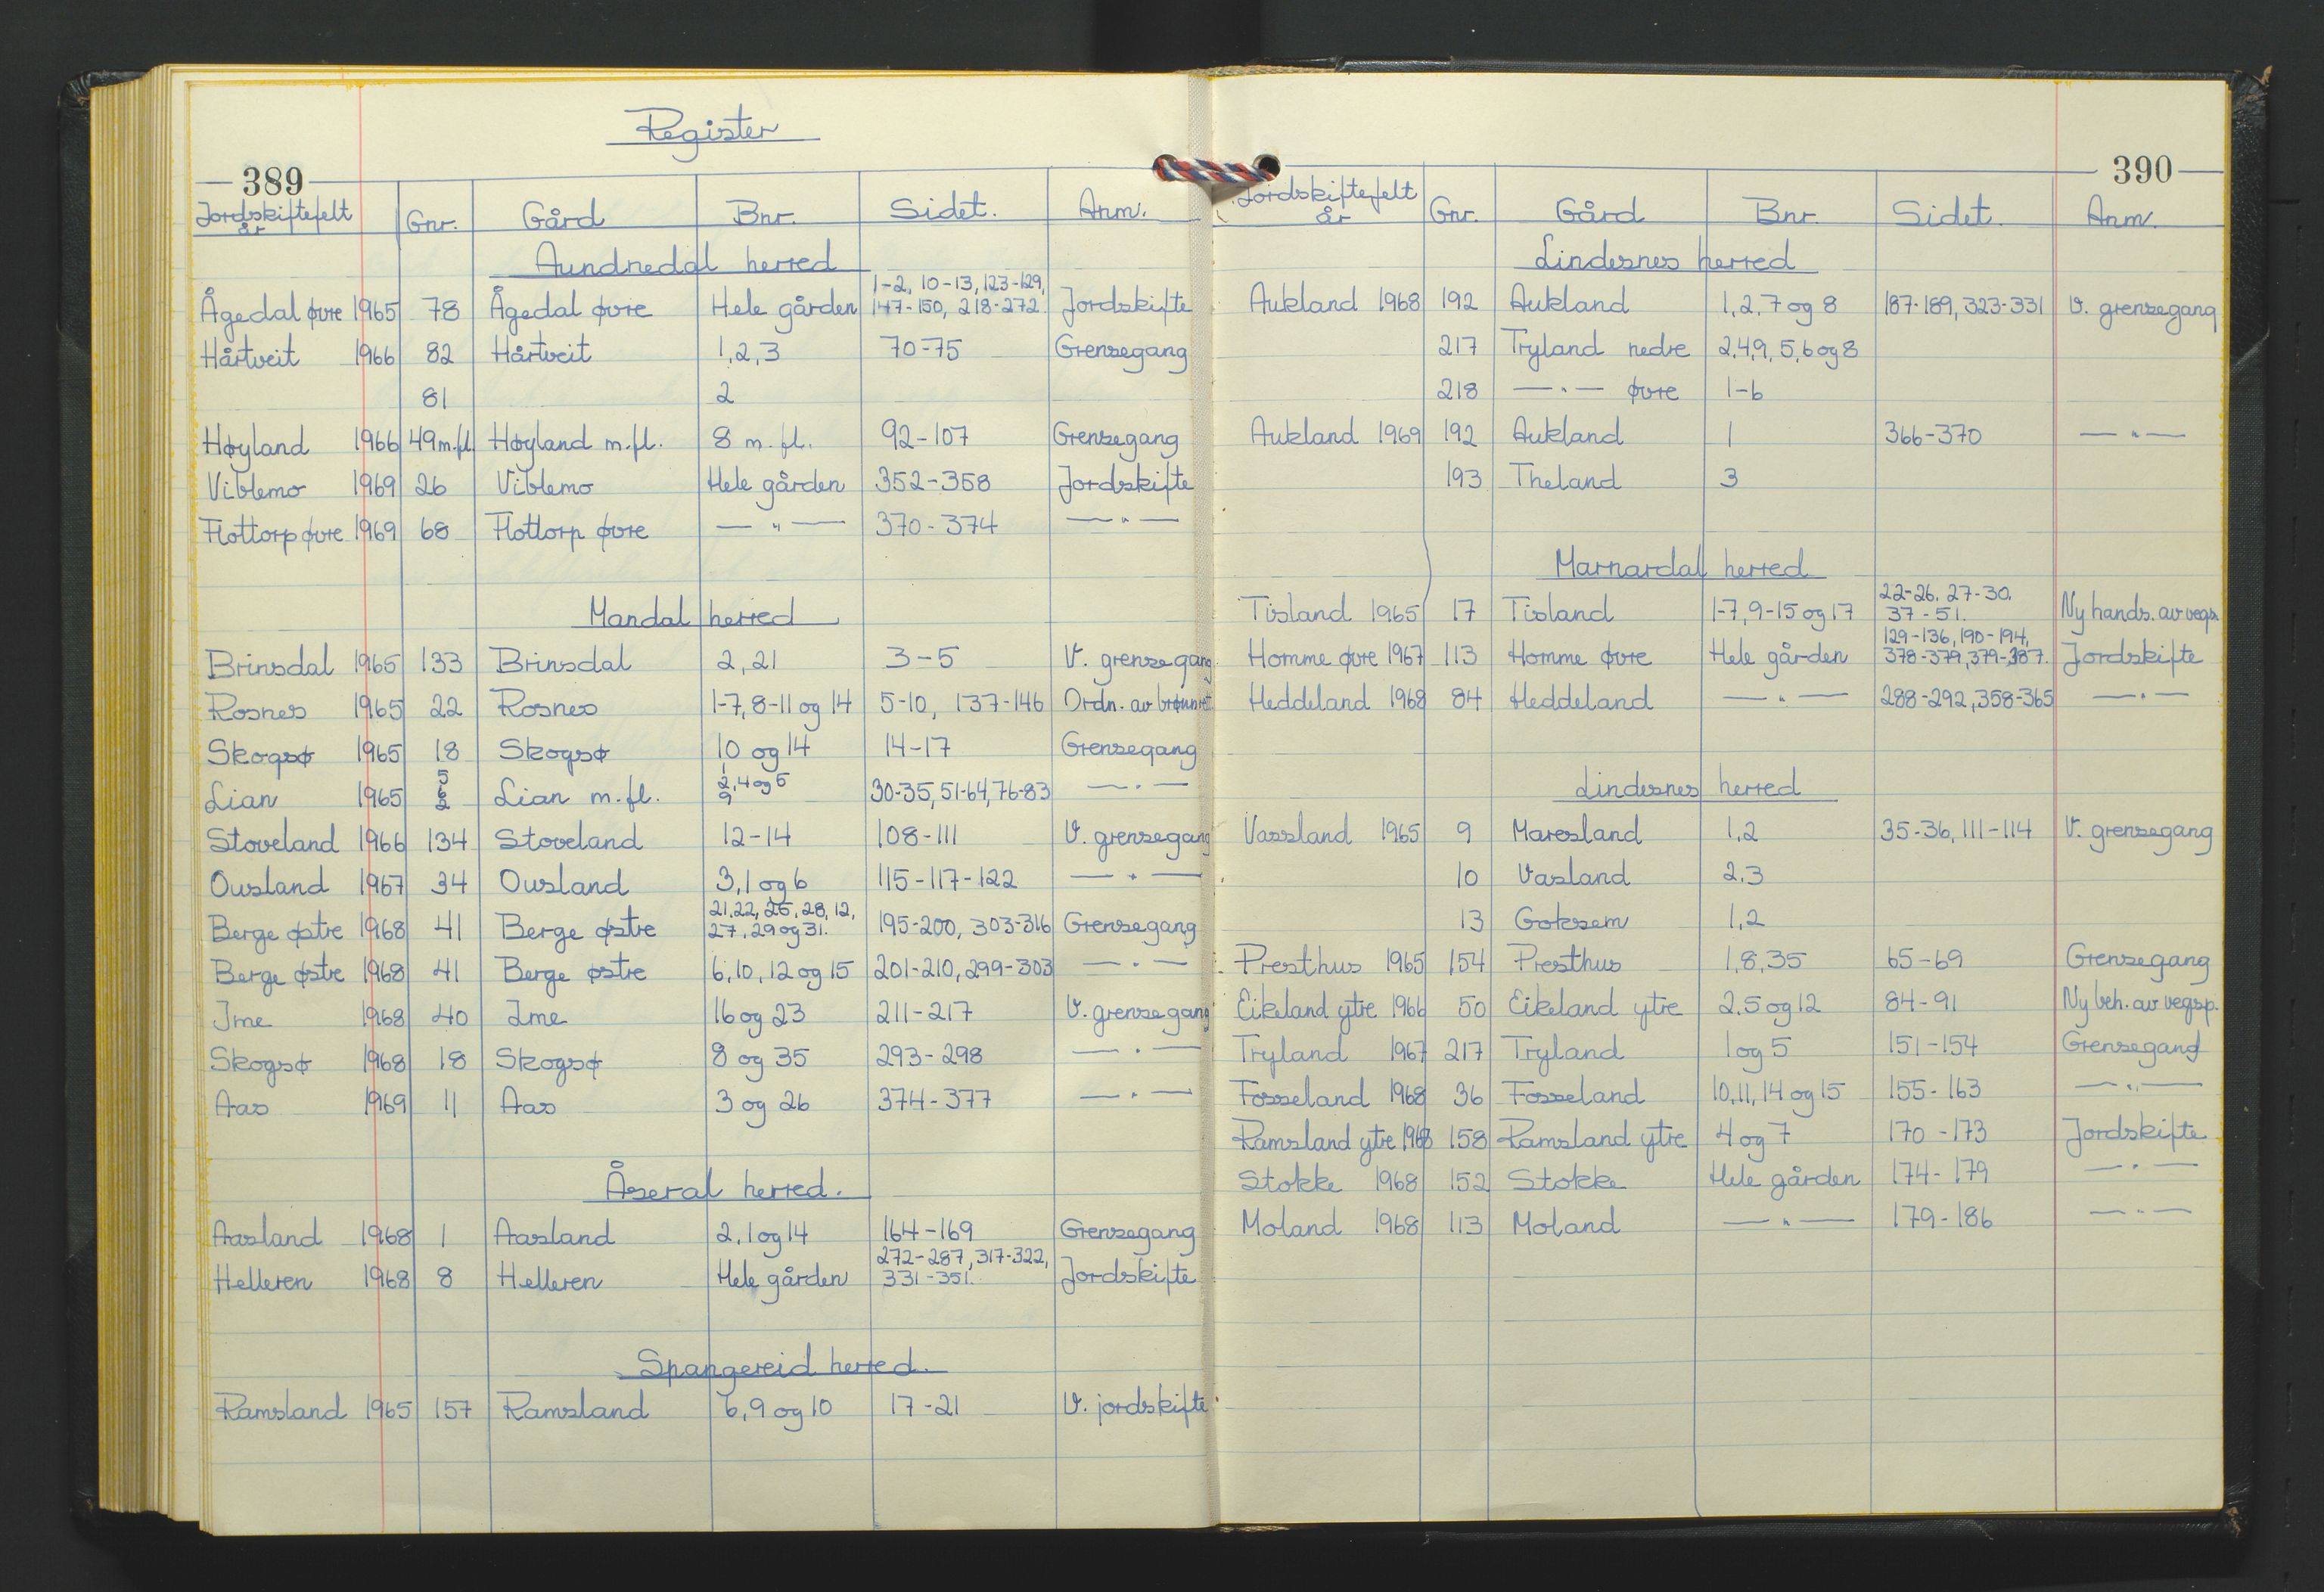 Register
389
Jordskiftefelt år Gnr. Gård Bnr. Sidet. Anm.
Aundnedal herred
1-2, 10-13, 123-129,
Ågedal øvre 1965 78 Ågedal øvre Hele gården 147-150, 218-272. Jordskifte
Hårtveit 1966 82 Hårtveit 1, 2, 3 70-75 Grensegang
81 2
Høyland 1966 49 m.fl. Høyland m.fl. 8 m.fl. 92-107 Grensegang
Viblemo 1969 26 Viblemo Hele gården 352-358 Jordskifte
Flottorp øvre 1969 68 Flottorp øvre — " — 370-374 — " —
Mandal herred
Brinsdal 1965 133 Brinsdal 2, 21 3-5 V. grensegang
Rosnes 1965 22 Rosnes 1-7, 8-11 og 14 5-10, 137-146 Ordn. av
Skogsø 1965 18 Skogsø 10 og 14 14-17 Grensegang
Lian 1965 5 6 2 Lian m.fl. 1 2, 4 og 5 9 30-35, 51-64, 76-83 — " —
Stoveland 1966 134 Stoveland 12-14 108-111 V. grensegang
Ousland 1967 34 Ousland 3, 1 og 6 115-117-122 — " —
21, 22, 25, 28, 12,
Berge østre 1968 41 Berge østre 27, 29 og 31. 195-200, 303-316 Grensegang
Berge østre 1968 41 Berge østre 6, 10, 12 og 15 201-210, 299-303 — " —
Ime 1968 40 Ime 16 og 23 211-217 V. grensegang
Skogsø 1968 18 Skogsø 8 og 35 293-298 — " —
Aas 1969 11 Aas 3 og 26 374-377 — " —
Åseral herred.
Aasland 1968 1 Aasland 2, 1 og 14 164-169 Grensegang
272-287, 317-322,
Helleren 1968 8 Helleren Hele gården 331-351. Jordskifte
Spangereid herred.
Ramsland 1965 157 Ramsland 6, 9 og 10 17-21 V. jordskifte
390
Jordskiftefelt år Gnr. Gård Bnr. Sidet. Anm.
Lindesnes herred
Aukland 1968 192 Aukland 1, 2, 7 og 8 187-189, 323-331 V. grensegang
217 Tryland nedre 2,4,9, 5,6 og 8
218 — " — øvre 1-6
Aukland 1969 192 Aukland 1 366-370 — " —
193 Theland 3
Marnardal herred
22-26. 27-30.
Tisland 1965 17 Tisland 1-7, 9-15 og 17 37-51. Ny hands. av vegs.
129-136, 190-194,
Homme øvre 1967 113 Homme øvre Hele gården 378-379, 379-387. Jordskifte
Heddeland 1968 84 Heddeland — " — 288-292, 358-365 — " —
Lindesnes herred
Vassland 1965 9 Maresland 1, 2 35-36, 111-114 V. grensegang
10 Vasland 2, 3
13 Goksem 1, 2
Presthus 1965 154 Presthus 1, 8, 35 65-69 Grensegang
Eikeland ytre 1966 50 Eikeland ytre 2, 5 og 12 84-91 Ny beh. av vegsp.
Tryland 1967 217 Tryland 1 og 5 151-154 Grensegang
Fosseland 1968 36 Fosseland 10, 11, 14 og 15 155-163 — " —
Ramsland ytre 1968 158 Ramsland ytre 4 og 7 170-173 Jordskifte
Stokke 1968 152 Stokke Hele gården 174-179 — " —
Moland 1968 113 Moland — " — 179-186 — " —